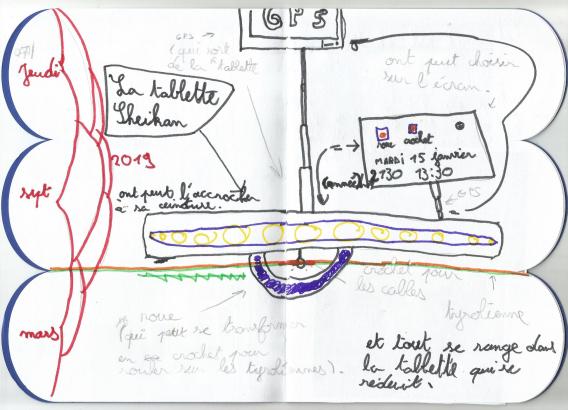 GPS
GPS
(qui sort
de la tablette
ont peut choisir
sur l'écran.
jeudi
La tablette
Sheikan
roue crochet
MARDI 15 janvier
2130 13:30
connecté
GPS
2019
sept
ont peut l'accrocher
à sa ceinture.
crochet pour
les cables
tyrolienne
mars
roue
(qui peut se transformer
en crochet pour
rouler sur les tyroliennes).
et tout se range dans
la tablette qui se
réduit.